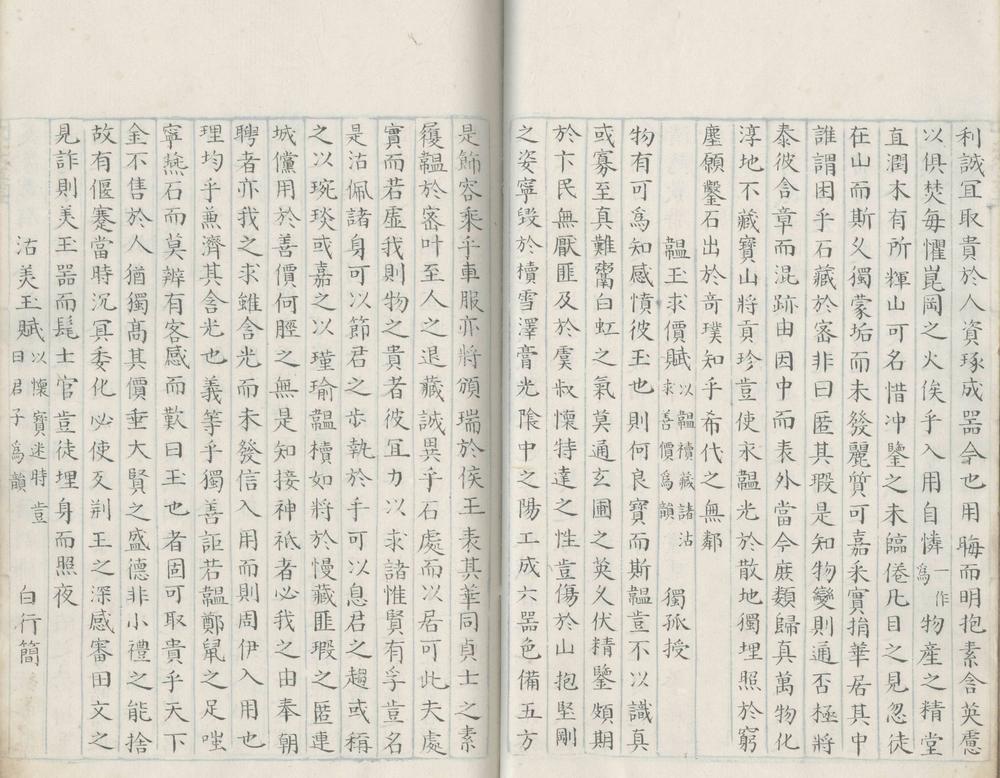 利誠冝取貴於人資琢成器令也用晦而明抱素含英慮
以俱焚每懼崑岡之火俟乎入用自憐一作為物産之精堂
直潤木有所輝山可名惜冲鑒之未臨倦凡目之見忽徒
在山而斯久獨蒙垢而未發麗質可嘉采實捐華居其中
誰謂困乎石藏於密非曰匿其瑕是知物變則通否極將
泰彼含章而混跡由因中而表外當令庻類歸真萬物化
淳地不藏寶山將貢珍豈使永韞光於散地獨埋照於窮
塵願鑿石出於奇璞知乎希代之無鄰
韞玉求價賦以韞櫝藏諸沽求善價為韻 獨孤授
物有可為知感憤彼玉也則何良寶而斯韞豈不以識真
或寡至真難鬻白虹之氣莫通玄圃之英久伏精鑒頗期
於卞民無厭匪及於虞叔懷特達之性豈傷於山抱堅剛
之姿寧毀於櫝雪澤膏光陰中之陽工成六器色備五方
是飾容乘乎車服亦將頒瑞於侯王表其華同貞士之素
履韞於密叶至人之退藏誠異乎石處而以居可此夫處
實而若虛我則物之貴者彼冝力以求諸惟賢有孚豈名
是沽佩諸身可以節君之步執於手可以息君之趨或稱
之以琬琰或嘉之以瑾瑜韞櫝如將於慢藏匪瑕之匿連
城儻用於善價何脛之無是知接神祇者必我之由奉朝
聘者亦我之求雖含光而未發信入用而則周伊入用也
理均乎兼濟其含光也義等乎獨善詎若韞鄭鼠之足嗤
寧燕石而莫辨有客感而歎曰玉也者固可取貴乎天下
金不售於人猶獨髙其價垂大賢之盛德非小禮之能捨
故有偃蹇當時沉冥委化必使反荆王之深感審田文之
見詐則美玉器而髦士官豈徒埋身而照夜
沽美玉賦以懷寶迷時豈曰君子為韻 白行簡